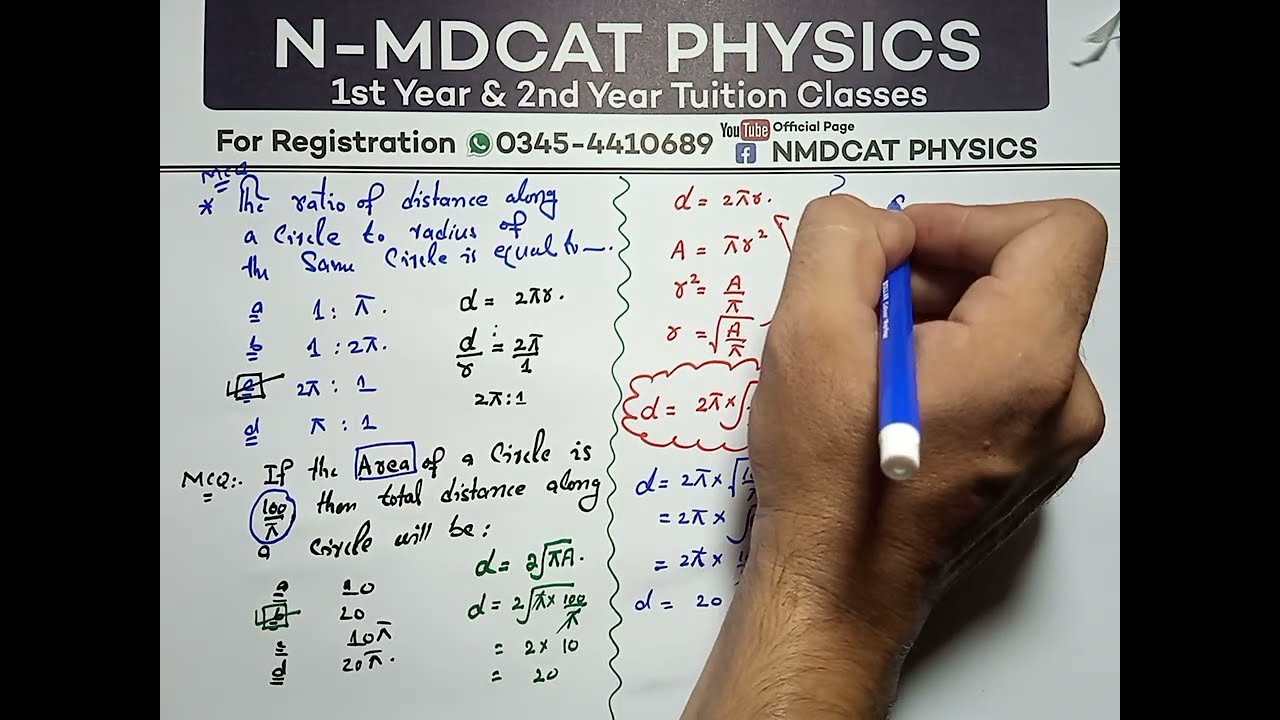 N-MDCAT PHYSICS
1st Year & 2nd Year Tuition Classes
For Registration 0345-4410689
YouTube Official Page
NMDCAT PHYSICS
MCQ
* The ratio of distance along
a Circle to radius of
the Same Circle is equal to—.
a 1 : π.
b 1 : 2π.
c 2π : 1
d π : 1
d = 2πr.
d/r = 2π/1
2π:1
MCQ:. If the Area of a Circle is
100/π then total distance along
a circle will be:
a 10
b 20
c 10π
d 20π.
d = 2√πA.
d = 2√π× 100/π
= 2 × 10
= 20
d = 2πr.
A = πr²
r² = A/π
r = √A/π
d = 2π×√
d = 2π×√
= 2π×
= 2π×
d = 20